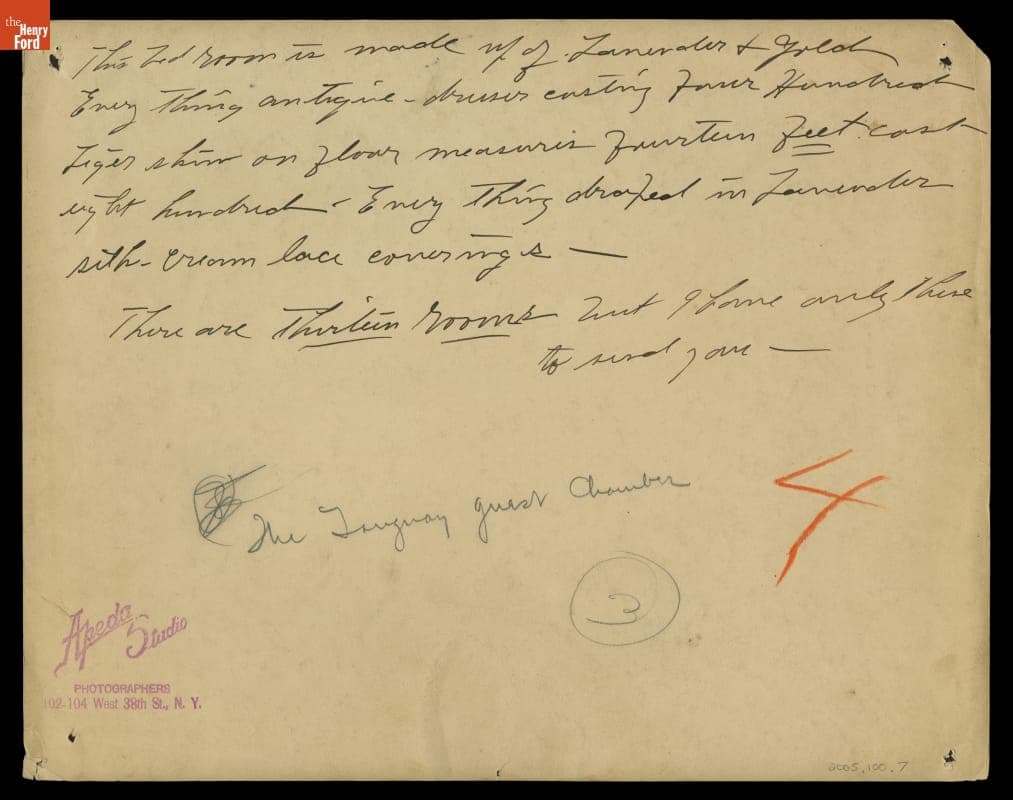 the
Henry
Ford
This bed room is made up of Lavender & Gold
Every thing antique - dresser costing Four Hundred
Tiger skin on floor measures fourteen feet cost
eight hundred - Every thing draped in Lavender
silk - cream lace coverings —
There are Thirteen Rooms but I have only these
to send you —
The Tanguay guest Chamber
4
3
Apeda
Studio
PHOTOGRAPHERS
102-104 West 38th St., N. Y.
2005.100.7